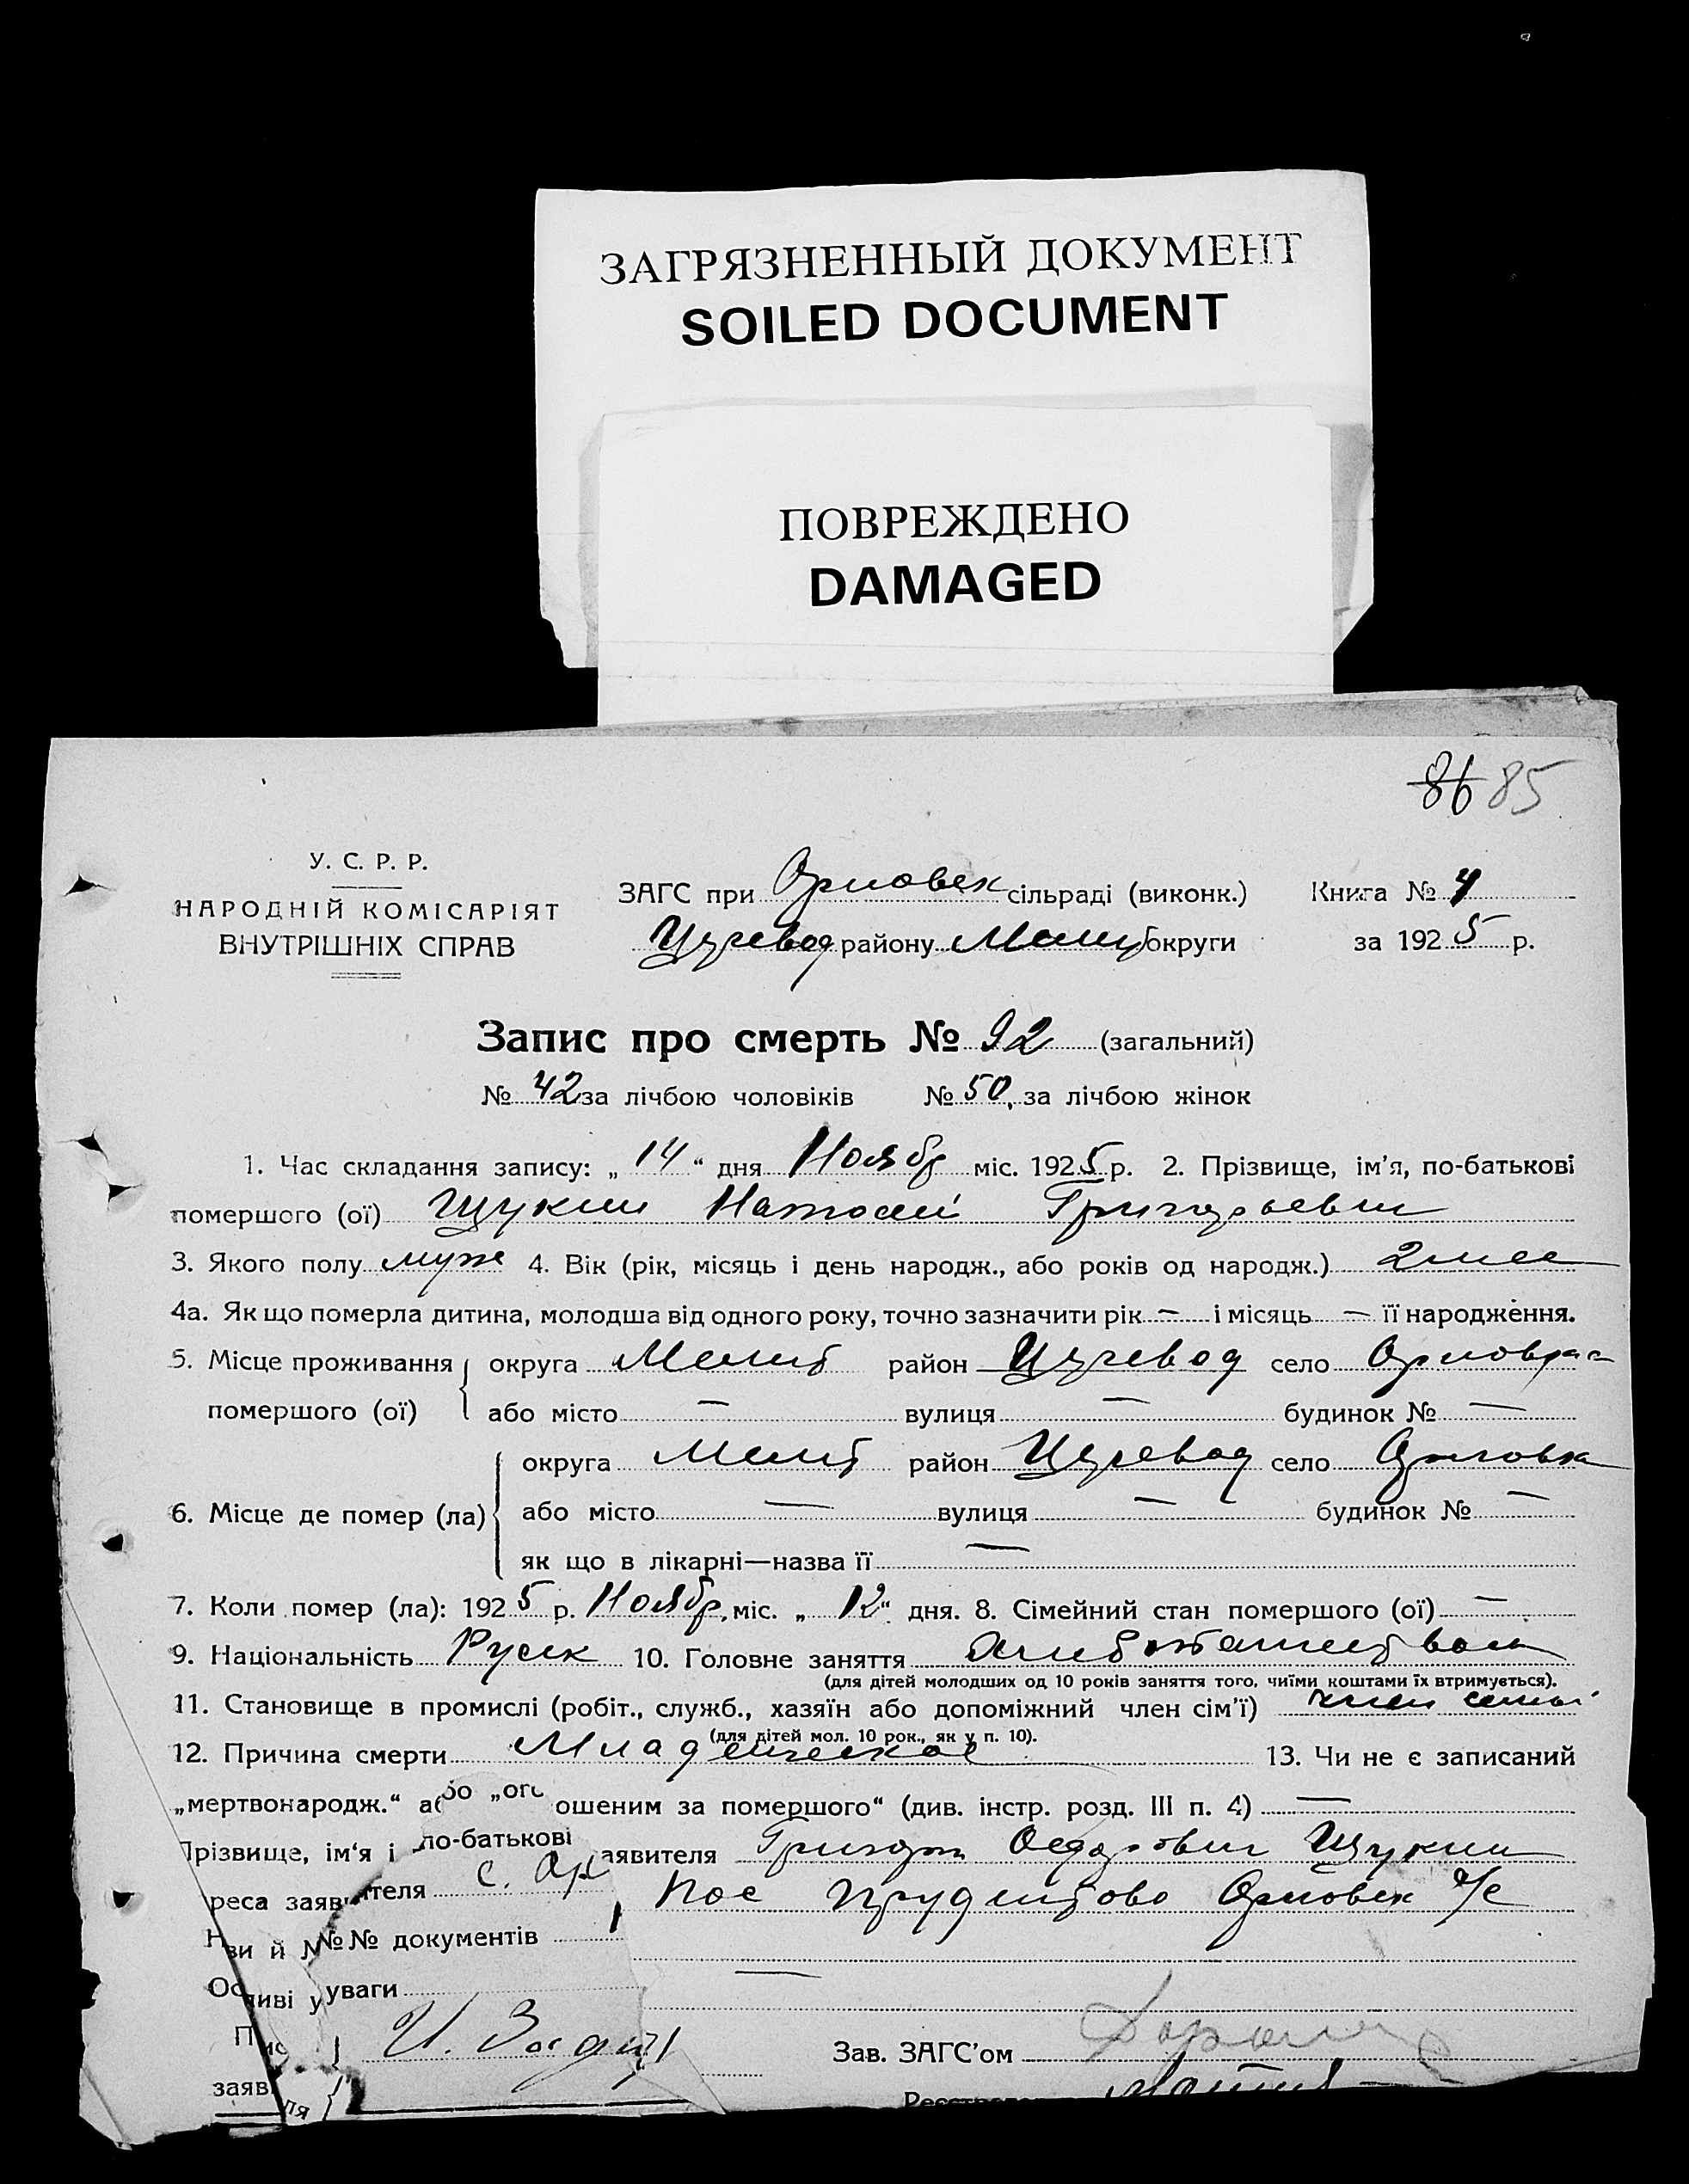 ЗАГРЯЗНЕННЫЙ ДОКУМЕНТ
SOILED DOCUMENT
ПОВРЕЖДЕНО
DAMAGED
86 85
У. С. Р. Р.
НАРОДНІЙ КОМІСАРІЯТ
ВНУТРІШНІХ СПРАВ
ЗАГС при Орловск сільраді (виконк.)
Книга № 4
району Мелит округи
за 1925 р.
Запис про смерть № 92 (загальний)
№ 42 за лічбою чоловіків № 50, за лічбою жінок
1. Час складання запису: „ 14 “ дня Ноябр міс. 1925 р. 2. Прізвище, ім’я, по-батькові
помершого (ої) Щукин Натолий Григорьевич
3. Якого полу муж 4. Вік (рік, місяць і день народж., або років од народж.) 2 мес
4а. Як що померла дитина, молодша від одного року, точно зазначити рік — і місяць — її народження.
5. Місце проживання помершого (ої) { округа Мелит район село
або місто — вулиця — будинок № —
6. Місце де помер (ла) { округа Мелит район село Орловка
або місто — вулиця — будинок № —
як що в лікарні—назва її —
7. Коли помер (ла): 1925 р. Ноябр, міс. „ 12 “ дня. 8. Сімейний стан помершого (ої) —
9. Національність Руск 10. Головне заняття
(для дітей молодших од 10 років заняття того, чиїми коштами їх втримується).
11. Становище в промислі (робіт., служб., хазяїн або допоміжний член сім’ї) член семьи
(для дітей мол. 10 рок., як у п. 10).
12. Причина смерти Младенческая 13. Чи не є записаний
„мертвонародж.“ або „ого ошеним за помершого“ (див. інстр. розд. III п. 4) —
Прізвище, ім‘я і по-батькові аявителя Григори Федорович Щукин
реса заявителя с. Ор Пос Орловск с/с
зи й №№ документів
Ос ливі уваги —
Пис } И. Зав. ЗАГС’ом
заяв ля {